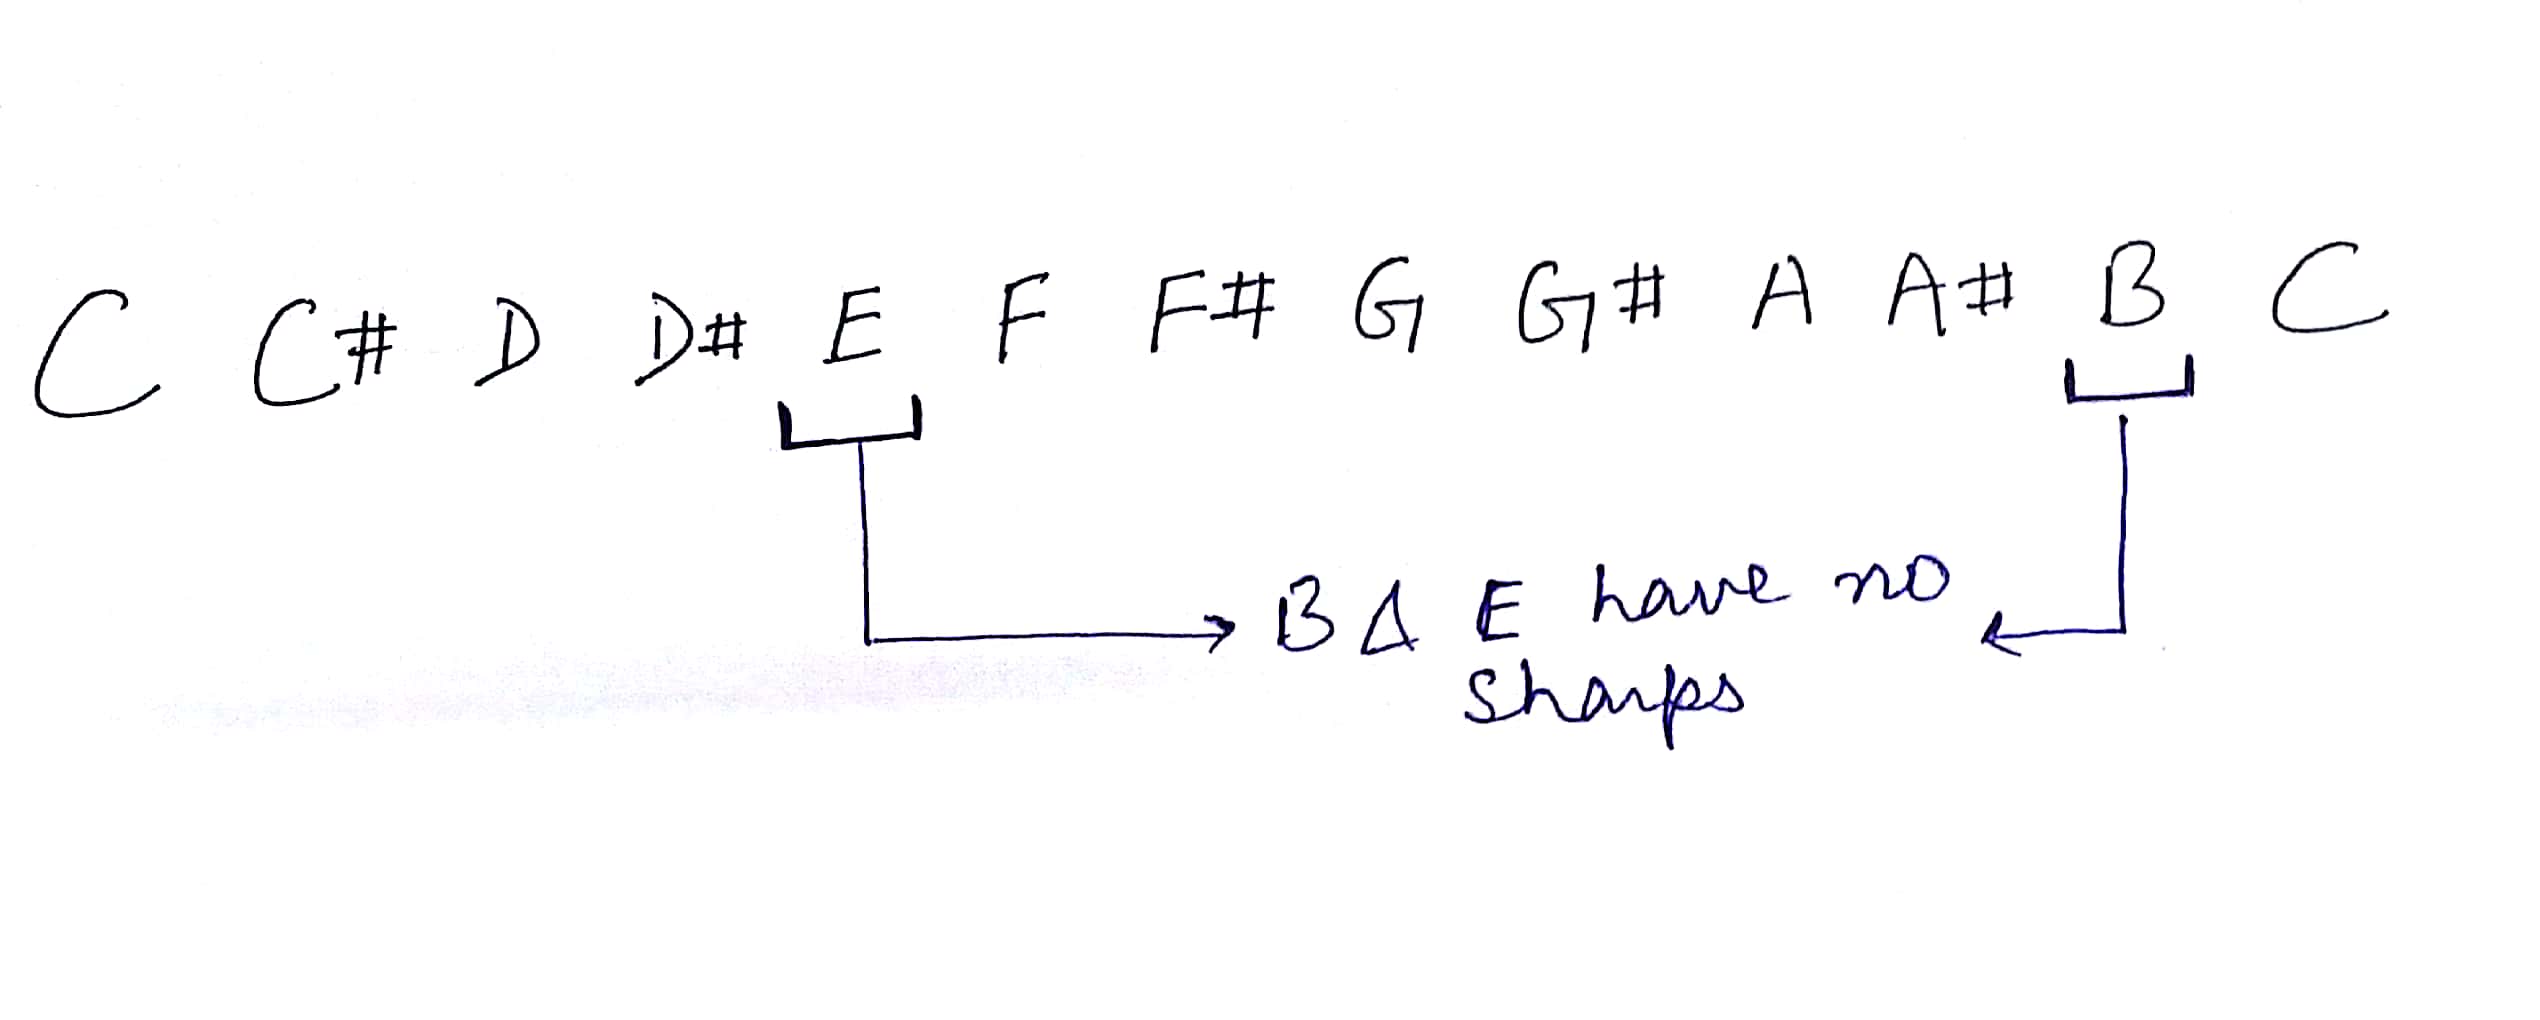 C C# D D# E F F# G G# A A# B C
B & E have no
sharps